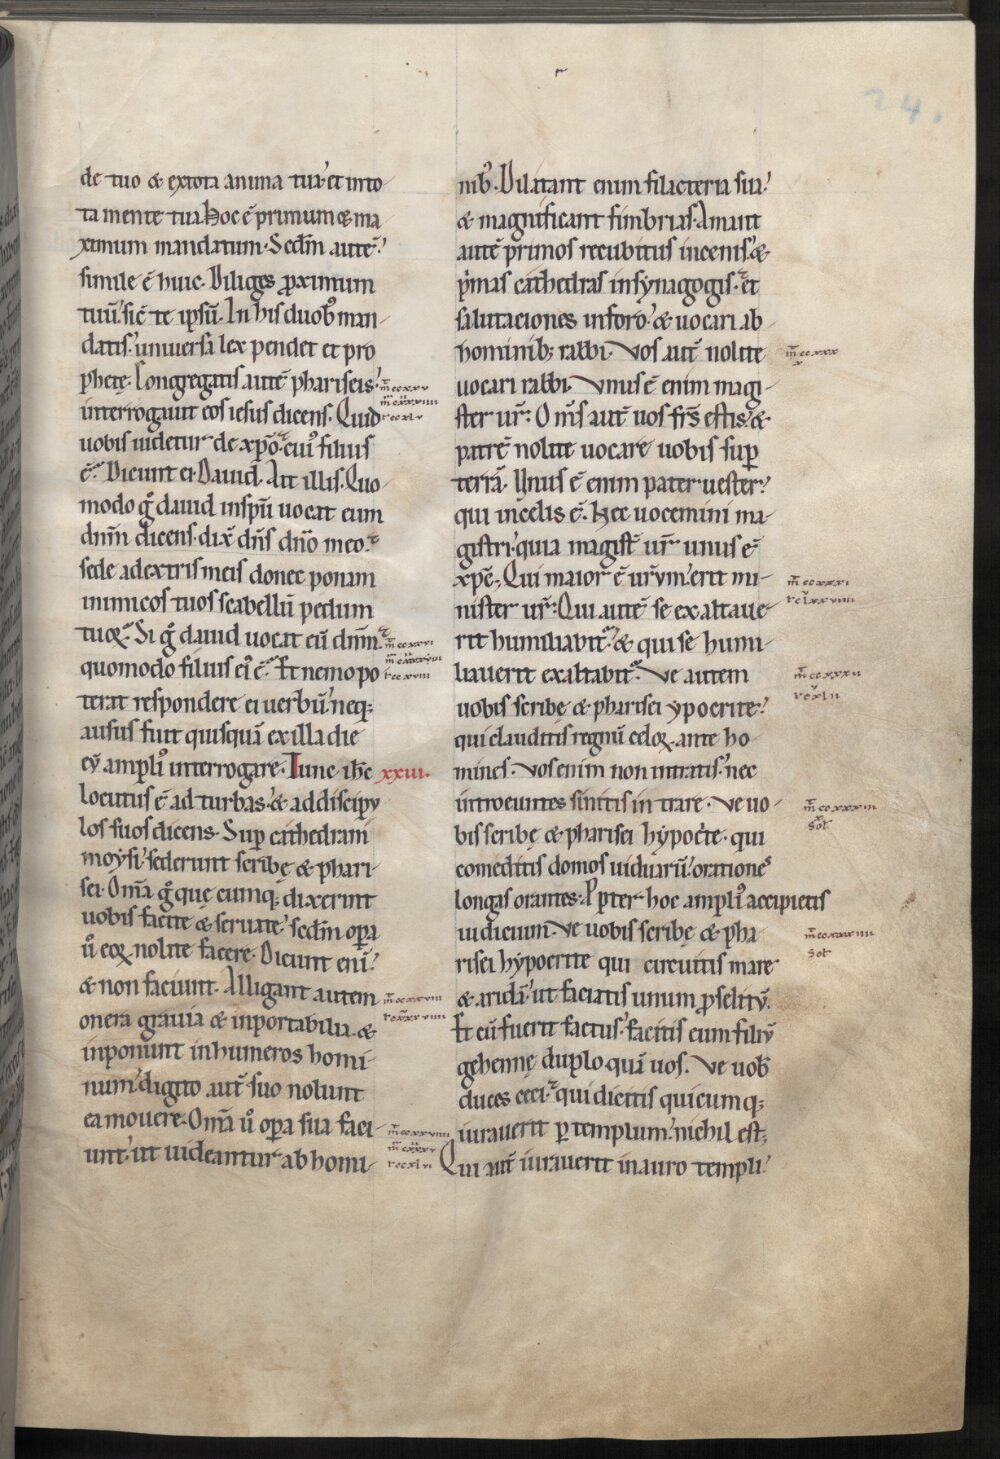 24.
de tuo & extota anima tua⸵ et into-
ta mente tua hoc ē primum & ma-
ximum mandatum· Secdm̄ autē⸵
simile ē huic· Diliges ꝓximum
tuū⸵ sic̄ te ipsū· In his duob; man-
datis⸵ uniuersa lex pendet et pro
phetę· Congregatis autē phariseis⸵
interrogauit eos iesus dicens· Quid
uobis uidetur de xp̄o· cui' filius
ē· Dicunt ei· Dauid· Ait illis· Quo
modo g̊ dauid inspū uocat eum
dnm̄ dicens· dix̄ dn̄s dn̄o meo·
sede adextris meis donec ponam
inimicos tuos scabellū pedum
tuoꝝ· Si g̊ dauid uocat eū dnm̄
quomodo filius ei' ē· Et nemo po
terat respondere ei uerbū⸵ neq;
ausus fuit quisquā ex illa die
eū ampli' interrogare· Tunc ih̄c xxiii.
locutus ē ad turbas⸵ & addiscipu
los suos dicens· Sup̱ cathedram
moysi⸵ sederunt scribę & phari-
sei· Om̄a g̊ quę cumq; dixerint
uobis facite & seruate⸵ secdm̄ oꝑa
u̇ eoꝝ nolite facere· Dicunt enī⸵
& non faciunt· Alligant autem
onera grauia & inportabilia· &
inponunt inhumeros homi-
num⸵ digito aut̄ suo nolunt
ea mouere· Om̄a u̇ oꝑa sua faci-
unt⸵ ut uideantur ab homi-
nib;· Dilatant enim filacteria sua⸵
& magnificant fimbrias· Amant
autē primos recubitus incenis⸵ &
p̓mas cathedras insynagogis· et
salutaciones inforo⸵ & uocari ab
hominib; rabbi· Vos aut̄ nolite
uocari rabbi· Vnus ē enim magi-
ster ur̄· Om̄s aut̄ uos frs̄ estis⸵ &
patrē nolite uocare uobis suꝑ
terrā· Unus ē enim pater uester⸵
qui incelis ē· Nec uocemini ma-
gistri⸵ quia magist̄ ur̄ unus ē
xpē· Qui maior ē ur̄vm⸵ erit mi-
nister ur̄· Qui autē se exaltaue-
rit humiliabit̄· & qui se humi-
liauerit exaltabit̄· Ve autem
uobis scribę & pharisei ypocrite⸵
qui clauditis regnū celoꝝ ante ho
mines· Vos enim non intratis⸵ nec
introeuntes sinitis in trare· Ve uo-
bis scribę & pharisei hypoc̓te· qui
comeditis domos uiduarū⸵ orationes
longas orantes· Ppter hoc ampli' accipietis
iudicium· Ve uobis scribę & pha
risei hypocrite qui circuitis mare
& aridā⸵ ut faciatis unum ꝓselitū·
Et cū fuerit factus⸵ facitis eum filiū
gehennę duplo quā uos· Ve uob̄
duces ceci· qui dicitis quicumq;
iurauerit ꝑ templum⸵ nichil est·
Qui aut̄ iurauerit inauro templi⸵